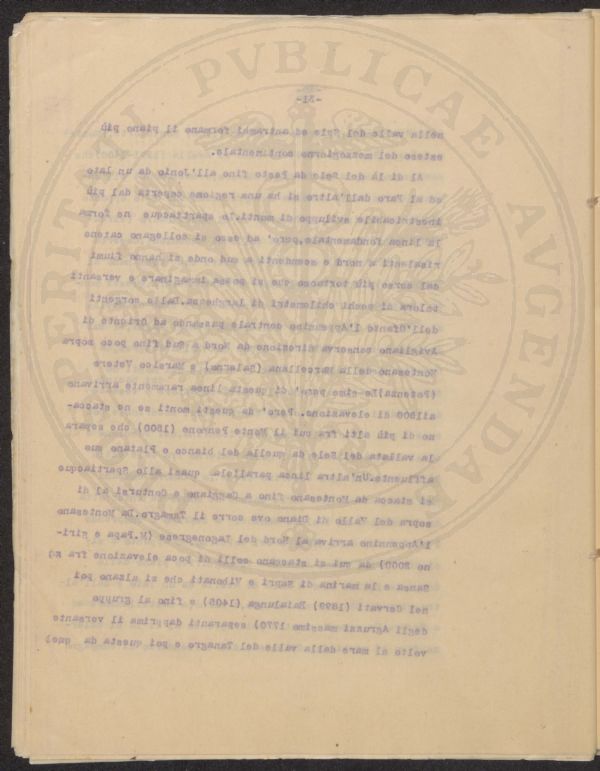 PERITATI PVBLICAE AVGENDAE
-31-
nella valle del Sele ed entrambi formano il piano più
esteso del mezzogiorno continentale.
Al di là del Sele da Pesto fino all'Jonio da un lato
ed al Faro dall'altro si ha una regione coperta dal più
inestricabile sviluppo di monti. Lo spartiacque ne forma
la linea fondamentale, pero' ad esso si collegano catene
risalenti a nord e scendenti a sud onde si hanno fiumi
dal corso più tortuoso che si possa immaginare e versanti
talora di pochi chilometri di larghezza. Dalle sorgenti
dell'Ofanto l'Appennino centrale passando ad Oriente di
Avigliano conserva direzione da Nord a sud fino poco sopra
Montesano della Marcellana (Salerno) e Marsico Vetere
(Potenza) Le cime pero' di questa linea raramente arrivano
ai 1500 di elevazione. Pero' da questi monti se ne stacca-
no di più alti fra cui il Monte Pennone (1500) che separa
la vallata del Sele da quella del bianco e Platano suo
affluente. Un'altra linea parallela quasi allo Spartiacque
si stacca da Montesano fino a Caggiano e Contursi al di
sopra del Vallo di Diano ove corre il Tanagro. Da Montesano
l'Appennino arriva al Nord del Lagonegrese (M. Papa e Siri-
no 2000) da cui si staccano colli di poca elevazione fra
Sanza e la marina di Sapri e Vibonati che si alzano poi
nel Cervati (1899) Raialunga (1405) e fino al gruppo
degli Agrussi massimo 1770) separanti dapprima il versante
volto al mare dalla valle del Tanagro e poi questa da quel